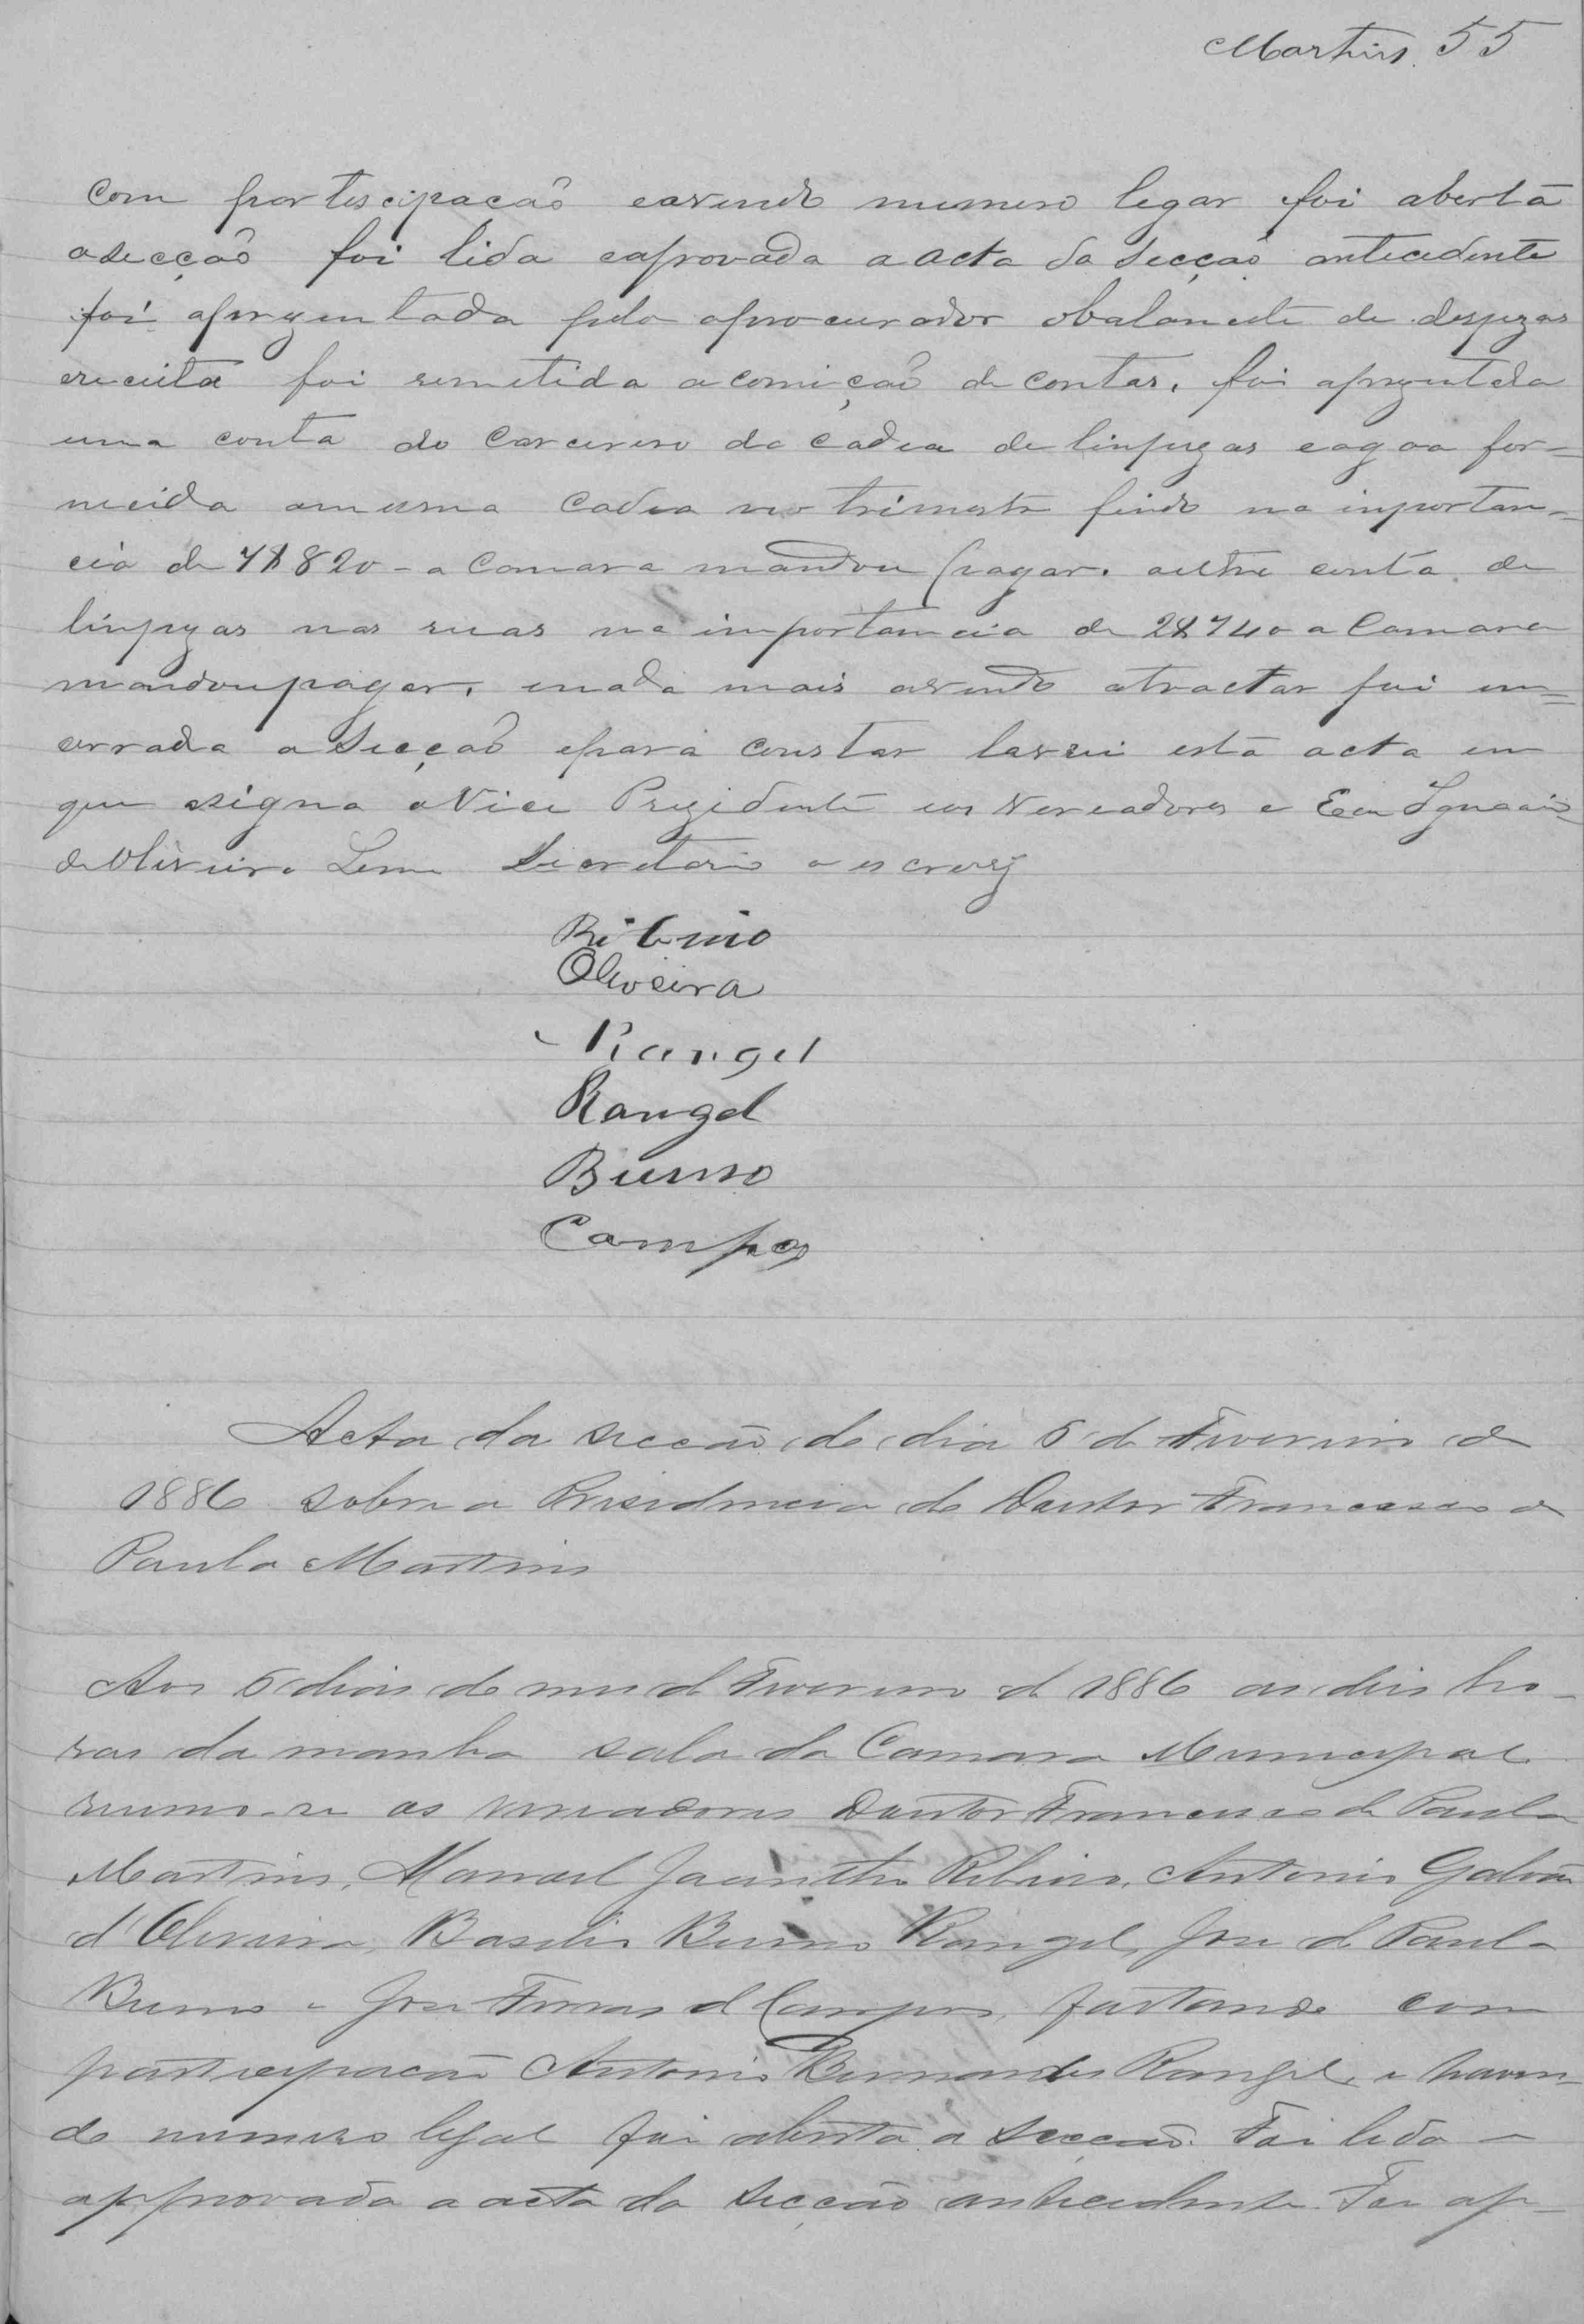 Martins. 55
Com partescipacaô eavendo numero legar foi aberta
asecçaô foi lida eaprovada a acta da Secçaô antecedente
foi aprezentada pelo aprocurador obalancete de despezas
ereceita foi remetida acomiçaô de contas. foi aprezentada
uma conta do Carcereiro da Cadea de linpezas eagoa for=
necida amesma Cadea no trimestre findo na inportan=
cia de 7$820 - a Camara mandou pagar. outra conta de
linpezas nas ruas na importancia de 2$740 a Camara
mandou pagar. enada mais avendo atractar foi en=
cerrada a Secçaô epara constar lavrei esta acta em
que asigna o Vice Prezidente eos Vereadores e Eeu Ignacio
de Oliveira Leme Secretario a escrevy
Ribeiro
Oliveira
Rangel
Rangel
Bueno
Campos
Acta da secção do dia 5 de Fevereiro de
1886 sobre a Presidencia do Doutor Francisco de
Paula Martins
Aos 5 dias do mes de Fevereiro de 1886 as dis ho-
ras da manha sala da Camara Municipal
reunio-se os vereadores Doutor Francisco de Paula
Martins, Manoel Jacintho Ribeiro, Antonio Galvão
d'Oliveira, Basilio Bueno Rangel, Jose de Paula
Bueno e Jose Ferras de Campos, faltando com
participacão Antonio Bernardes Rangel, e haven-
do numero legal foi aberta a secção. Foi lida e
approvada a acta da secção antecedente. Foi ap-